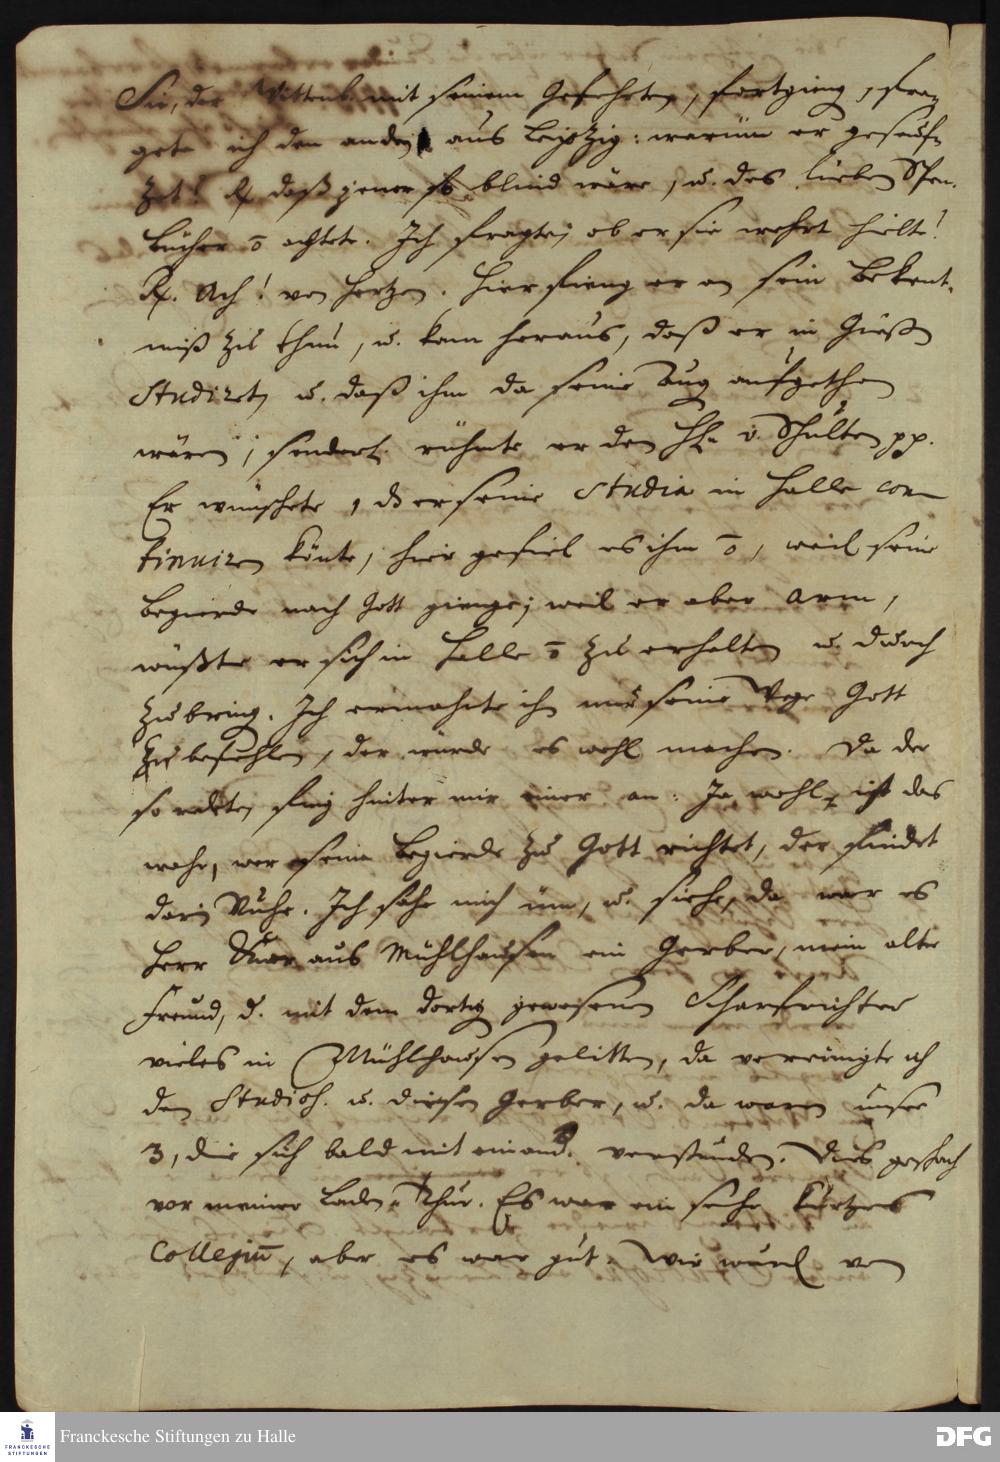 Sie, der Wittenb. mit seinem Gefehrten, fortging, fra-
gete ich den andern aus Leipzig: warüm er geseuf-
zet? R. daß jener so blind wäre, u. des lieben Spen.
Bücher ō achtete. Ich fragte, ob er sie wehrt hielte?
R. Ach! von Hertzen. Hier fieng er an sein Bekent-
niß zu thun, u. kam heraus, daß er in Gießen
Studiret, u. daß ihm da seine Augen aufgethan
wären, sonderl. rühmte er den HE. v. Schulten pp.
Er wünschete, dz er seine Studia in Halle con-
tinuiren könte, hier gefiel es ihm ō, weil seine
Begierde nach Gott gienge; weil er aber arm,
wüßte er sich in Halle ō zu erhalten u. durch
zubringen. Ich ermahnte ihn nur seine Wege Gott
zu befehlen, der würde es wohl machen. Da der
so redete, fing hinter mir einer an: Ja wohl, ist das
wahr, wer seine Begierde zu Gott richtet, der findet
darin Ruhe. Ich sahe mich üm, u. siehe, da war es
Herr aus Mühlhausen ein Gerber, mein alter
Freund, d. mit dem dortig gewesenen Scharfrichter
vieles in Mühlhausen gelitten, da vereinigte ich
den Studios. u. diesen Gerber, u. da waren unser
3, die sich bald mit einand. verstunden. Dies geschach
vor meiner Laden-Thür. Es war ein sehr kurtzes
Collegiū, aber es war gut. Wir wurd. von
Franckesche Stiftungen zu Halle
FRANCKESCHE
STIFTUNGEN
DFG